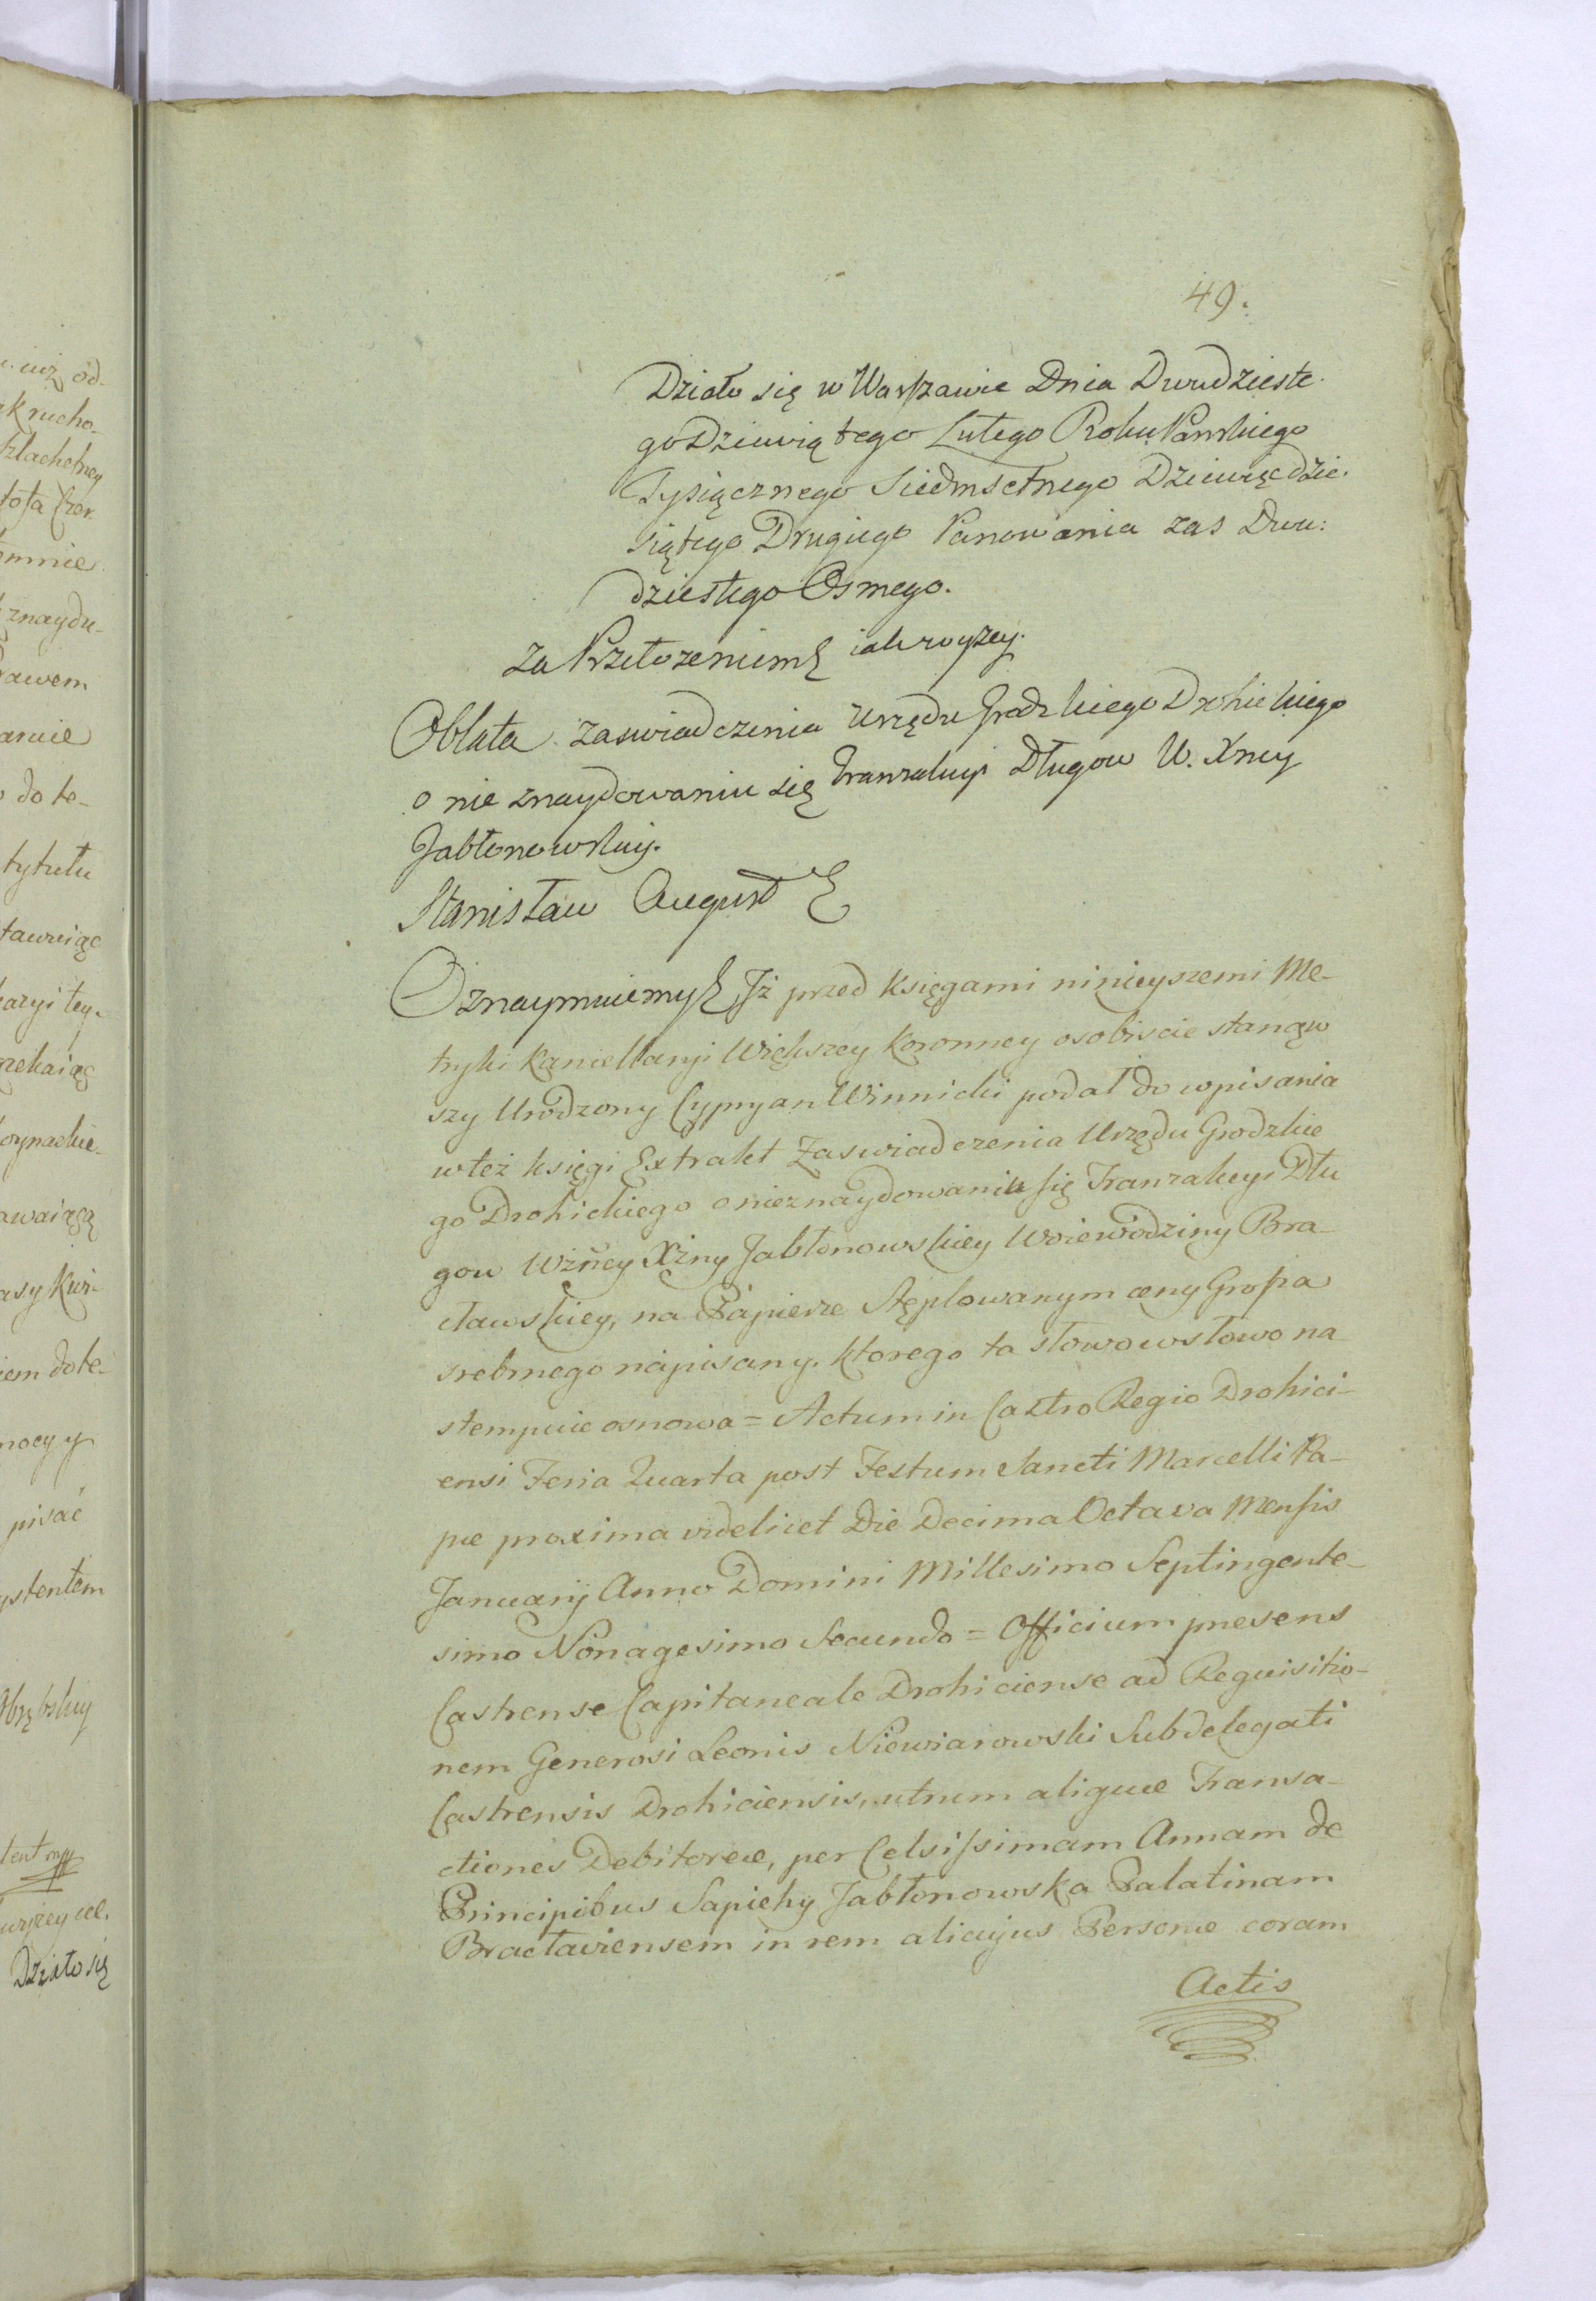 49.
Działo się w Warszawie Dnia Dwudzieste-
go Dziewiątego Lutego Roku Pańskiego
Tysiącznego Siedmsetnego Dziewięcdzie-
siątego Drugiego Panowania zas Dwu:
dziestego Osmego.
Za Przełozeniem iak wyzey.
Oblata zaswiadczenia Urzędu Grodzkiego Drohickiego
o nie znaydowaniu się Tranzakcyi Długow W. Xney
Jabłonowskiey.
Stanisław August
Oznaymuiemy Jż przed Księgami ninieyszemi Me-
tryki Kancellaryi Większey Koronney osobiscie stanąw
szy Urodzony Cypryan Winnicki podał do wpisania
w też księgi Extrakt Zaswiadczenia Urzędu Grodzkie
go Drohickiego o nieznaydowaniu się Tranzakcyi Dłu
gow Wżney Xżny Jabłonowskiey Woiewodziny Bra-
cławskiey, na Papierze Stęplowanym ceny Grosza
srebrnego napisany. ktorego ta słowo w słowo na
stempuie osnowa = Actum in Castro Regio Drohici-
ensi Feria Quarta post Festum Sancti Marcelli Pa-
pæ proxima videlicet Die Decima Octava Mensis
Januarij Anno Domini Millesimo Septingente-
simo Nonagesimo Secundo = Officium presens
Castrense Capitaneale Drohiciense ad Requisitio-
nem Generosi Leonis Niewiarowski Subdelegati
Castrensis Drohiciensis, utrum aliquæ Transa-
ctiones Debitoreæ, per Celsissimam Annam de
Principibus Sapiehy Jabłonowska Palatinam
Bracłaviensem in rem alicujus Personæ coram
Actis